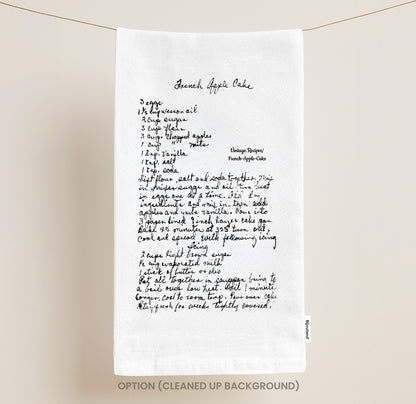 French Apple Cake
3 eggs
1½ cup wesson oil
2 cup sugar
3 cup flour
3 cup chopped apples
1 cup nuts
1 tsp. vanilla
1 tsp. salt
1 tsp. soda
Vintage Recipes/
French-Apple-Cake
Sift flour, salt and soda together. Mix
in sugar and oil
in eggs one at a time.
ingredients and mix in
apples and nuts vanilla. into
3 paper lined 9 inch layer cake pan
Bake 45 minutes at 325
Cool and spread with following icing
Icing
2 cups light brown sugar
evaporated milk
1 stick of butter or oleo
Put all together in saucepan bring to
a boil over low heat. Boil 1 minute
longer, cool to room temp. Pour over cake
fresh for weeks tightly covered.
OPTION (CLEANED UP BACKGROUND)